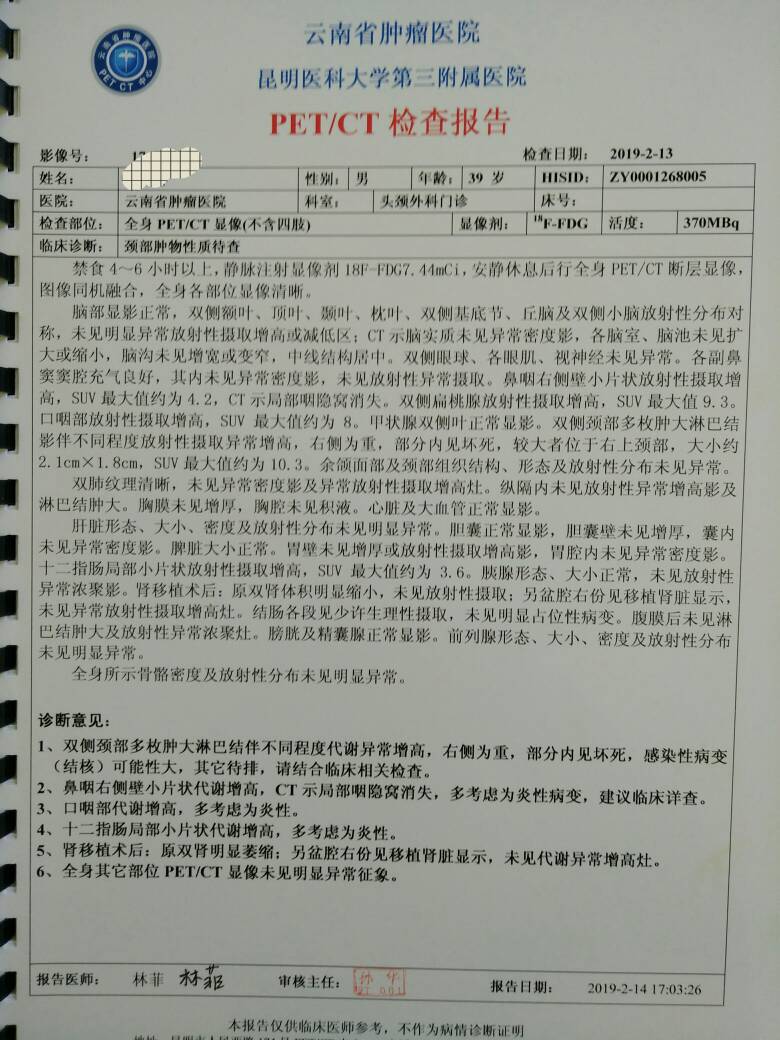 云南省肿瘤医院
PET CT 中心
云南省肿瘤医院
昆明医科大学第三附属医院
PET/CT 检查报告
影像号： 17 检查日期： 2019-2-13
姓名： 性别： 男 年龄： 39 岁 HISID： ZY0001268005
医院： 云南省肿瘤医院 科室： 头颈外科门诊 床号：
检查部位： 全身 PET/CT 显像(不含四肢) 显像剂： ¹⁸F-FDG 活度： 370MBq
临床诊断： 颈部肿物性质待查
禁食 4～6 小时以上，静脉注射显像剂 18F-FDG7.44mCi，安静休息后行全身 PET/CT 断层显像，
图像同机融合，全身各部位显像清晰。
脑部显影正常，双侧额叶、顶叶、颞叶、枕叶、双侧基底节、丘脑及双侧小脑放射性分布对
称，未见明显异常放射性摄取增高或减低区；CT 示脑实质未见异常密度影，各脑室、脑池未见扩
大或缩小，脑沟未见增宽或变窄，中线结构居中。双侧眼球、各眼肌、视神经未见异常。各副鼻
窦窦腔充气良好，其内未见异常密度影，未见放射性异常摄取。鼻咽右侧壁小片状放射性摄取增
高，SUV 最大值约为 4.2，CT 示局部咽隐窝消失。双侧扁桃腺放射性摄取增高，SUV 最大值 9.3。
口咽部放射性摄取增高，SUV 最大值约为 8。甲状腺双侧叶正常显影。双侧颈部多枚肿大淋巴结
影伴不同程度放射性摄取异常增高，右侧为重，部分内见坏死，较大者位于右上颈部，大小约
2.1cm×1.8cm，SUV 最大值约为 10.3。余颌面部及颈部组织结构、形态及放射性分布未见异常。
双肺纹理清晰，未见异常密度影及异常放射性摄取增高灶。纵隔内未见放射性异常增高影及
淋巴结肿大。胸膜未见增厚，胸腔未见积液。心脏及大血管正常显影。
肝脏形态、大小、密度及放射性分布未见明显异常。胆囊正常显影，胆囊壁未见增厚，囊内
未见异常密度影。脾脏大小正常。胃壁未见增厚或放射性摄取增高影，胃腔内未见异常密度影。
十二指肠局部小片状放射性摄取增高，SUV 最大值约为 3.6。胰腺形态、大小正常，未见放射性
异常浓聚影。肾移植术后：原双肾体积明显缩小，未见放射性摄取；另盆腔右份见移植肾脏显示，
未见异常放射性摄取增高灶。结肠各段见少许生理性摄取，未见明显占位性病变。腹膜后未见淋
巴结肿大及放射性异常浓聚灶。膀胱及精囊腺正常显影。前列腺形态、大小、密度及放射性分布
未见明显异常。
全身所示骨骼密度及放射性分布未见明显异常。
诊断意见：
1、双侧颈部多枚肿大淋巴结伴不同程度代谢异常增高，右侧为重，部分内见坏死，感染性病变
（结核）可能性大，其它待排，请结合临床相关检查。
2、鼻咽右侧壁小片状代谢增高，CT 示局部咽隐窝消失，多考虑为炎性病变，建议临床详查。
3、口咽部代谢增高，多考虑为炎性。
4、十二指肠局部小片状代谢增高，多考虑为炎性。
5、肾移植术后：原双肾明显萎缩；另盆腔右份见移植肾脏显示，未见代谢异常增高灶。
6、全身其它部位 PET/CT 显像未见明显异常征象。
报告医师： 林菲 林菲 审核主任： 报告日期： 2019-2-14 17:03:26
本报告仅供临床医师参考，不作为病情诊断证明